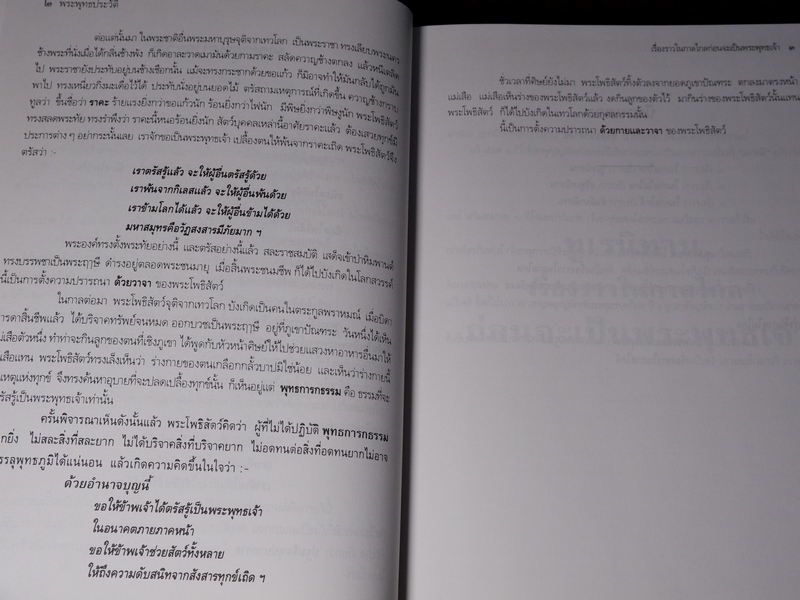 ๒ พระพุทธประวัติ
ต่อแต่นั้นมา ในพระชาติอื่นพระมหาบุรุษจุติจากเทวโลก เป็นพระราชา ทรงเลียบพระนคร
ช้างพระที่นั่งเมื่อได้กลิ่นช้างพัง ก็เกิดอาละวาดเมามันด้วยกามราคะ สลัดควาญช้างตกลง แล้วหนีเตลิด
ไป พระราชายังประทับอยู่บนช้างเชือกนั้น แม้จะทรงกระชากด้วยขอแก้ว ก็มิอาจทำให้มันกลับได้ถูกมัน
พาไป ทรงเหนี่ยวกิ่งมะเดื่อไว้ได้ ประทับนั่งอยู่บนยอดไม้ ตรัสถามเหตุการณ์ที่เกิดขึ้น ควาญช้างกราบ
ทูลว่า ขึ้นชื่อว่า ราคะ ร้ายแรงยิ่งกว่าขอแก้วนัก ร้อนยิ่งกว่าไฟนัก มีพิษยิ่งกว่าพิษงูนัก พระโพธิสัตว์
ทรงสลดพระทัย ทรงรำพึงว่า ราคะนี้หนอร้อนยิ่งนัก สัตว์บุคคลเหล่านี้อาศัยราคะแล้ว ต้องเสวยทุกข์มี
ประการต่าง ๆ อย่ากระนั้นเลย เราจักขอเป็นพระพุทธเจ้า เปลื้องตนให้พ้นจากราคะเถิด พระโพธิสัตว์จึง
ตรัสว่า :-
เราตรัสรู้แล้ว จะให้ผู้อื่นตรัสรู้ด้วย
เราพ้นจากกิเลสแล้ว จะให้ผู้อื่นพ้นด้วย
เราข้ามโลกได้แล้ว จะให้ผู้อื่นข้ามได้ด้วย
มหาสมุทรคือวัฏสงสารมีภัยมาก ฯ
พระองค์ทรงตั้งพระทัยอย่างนี้ และตรัสอย่างนี้แล้ว สละราชสมบัติ เสด็จเข้าป่าหิมพานต์
ทรงบรรพชาเป็นพระฤๅษี ดำรงอยู่ตลอดพระชนมายุ เมื่อสิ้นพระชนมชีพ ก็ได้ไปบังเกิดในโลกสวรรค์
นี้เป็นการตั้งความปรารถนา ด้วยวาจา ของพระโพธิสัตว์
ในกาลต่อมา พระโพธิสัตว์จุติจากเทวโลก บังเกิดเป็นคนในตระกูลพราหมณ์ เมื่อบิดา
ารดาสิ้นชีพแล้ว ได้บริจาคทรัพย์จนหมด ออกบวชเป็นพระฤๅษี อยู่ที่ภูเขาปัณฑระ วันหนึ่งได้เห็น
ม่เสือตัวหนึ่ง ทำท่าจะกินลูกของตนที่เชิงภูเขา ได้พูดกับหัวหน้าศิษย์ให้ไปช่วยแสวงหาอาหารอื่นมาให้
เสือแทน พระโพธิสัตว์ทรงเล็งเห็นว่า ร่างกายของตนเกลือกกลั้วบาปมิใช่น้อย และเห็นว่าร่างกายนี้
หตุแห่งทุกข์ จึงทรงค้นหาอุบายที่จะปลดเปลื้องทุกข์นั้น ก็เห็นอยู่แต่ พุทธการกธรรม คือ ธรรมที่จะ
รัสรู้เป็นพระพุทธเจ้าเท่านั้น
ครั้นพิจารณาเห็นดังนั้นแล้ว พระโพธิสัตว์คิดว่า ผู้ที่ไม่ได้ปฏิบัติ พุทธการกธรรม
ากยิ่ง ไม่สละสิ่งที่สละยาก ไม่ได้บริจาคสิ่งที่บริจาคยาก ไม่อดทนต่อสิ่งที่อดทนยากไม่อาจ
รรลุพุทธภูมิได้แน่นอน แล้วเกิดความคิดขึ้นในใจว่า :-
ด้วยอำนาจบุญนี้
ขอให้ข้าพเจ้าได้ตรัสรู้เป็นพระพุทธเจ้า
ในอนาคตภายภาคหน้า
ขอให้ข้าพเจ้าช่วยสัตว์ทั้งหลาย
ให้ถึงความดับสนิทจากสังสารทุกข์เถิด ฯ
เรื่องราวในกาลไกลก่อนจะเป็นพระพุทธเจ้า ๓
ชั่วเวลาที่ศิษย์ยังไม่มา พระโพธิสัตว์ทิ้งตัวลงจากยอดภูเขาปัณฑระ ตกลงมาตรงหน้า
แม่เสือ แม่เสือเห็นร่างของพระโพธิสัตว์แล้ว งดกินลูกของตัวไว้ มากินร่างของพระโพธิสัตว์นั้นแทน
พระโพธิสัตว์ ก็ได้ไปบังเกิดในเทวโลกด้วยกุศลกรรมนั้น
นี้เป็นการตั้งความปรารถนา ด้วยกายและวาจา ของพระโพธิสัตว์